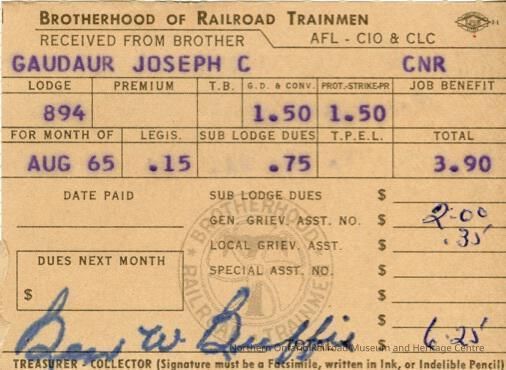 BROTHERHOOD OF RAILROAD TRAINMEN
RECEIVED FROM BROTHER AFL - CIO & CLC
GAUDAUR JOSEPH C CNR
LODGE PREMIUM T.B. G.D. & CONV. PROT.-STRIKE-PR JOB BENEFIT
894 1.50 1.50
FOR MONTH OF LEGIS. SUB LODGE DUES T.P.E.L. TOTAL
AUG 65 .15 .75 3.90
DATE PAID SUB LODGE DUES $ 2.00
GEN. GRIEV. ASST. NO. $ .35
LOCAL GRIEV. ASST. $
DUES NEXT MONTH SPECIAL ASST. NO. $
$ $
$
$ 6.25
BROTHERHOOD
RAILROAD TRAINMEN
Northern Ontario Railroad Museum and Heritage Centre
TREASURER - COLLECTOR (Signature must be a Facsimile, written in Ink, or Indelible Pencil)